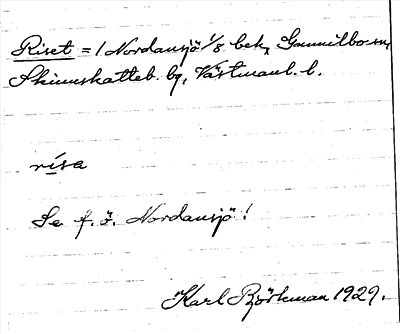 Riset = 1 Nordansjö 1/8 bek, Gunnilbo sn,
Skinnskatteb. bg, Västmanl. l.
rísa
Se f. ö. Nordansjö!
Karl Björkman 1929.